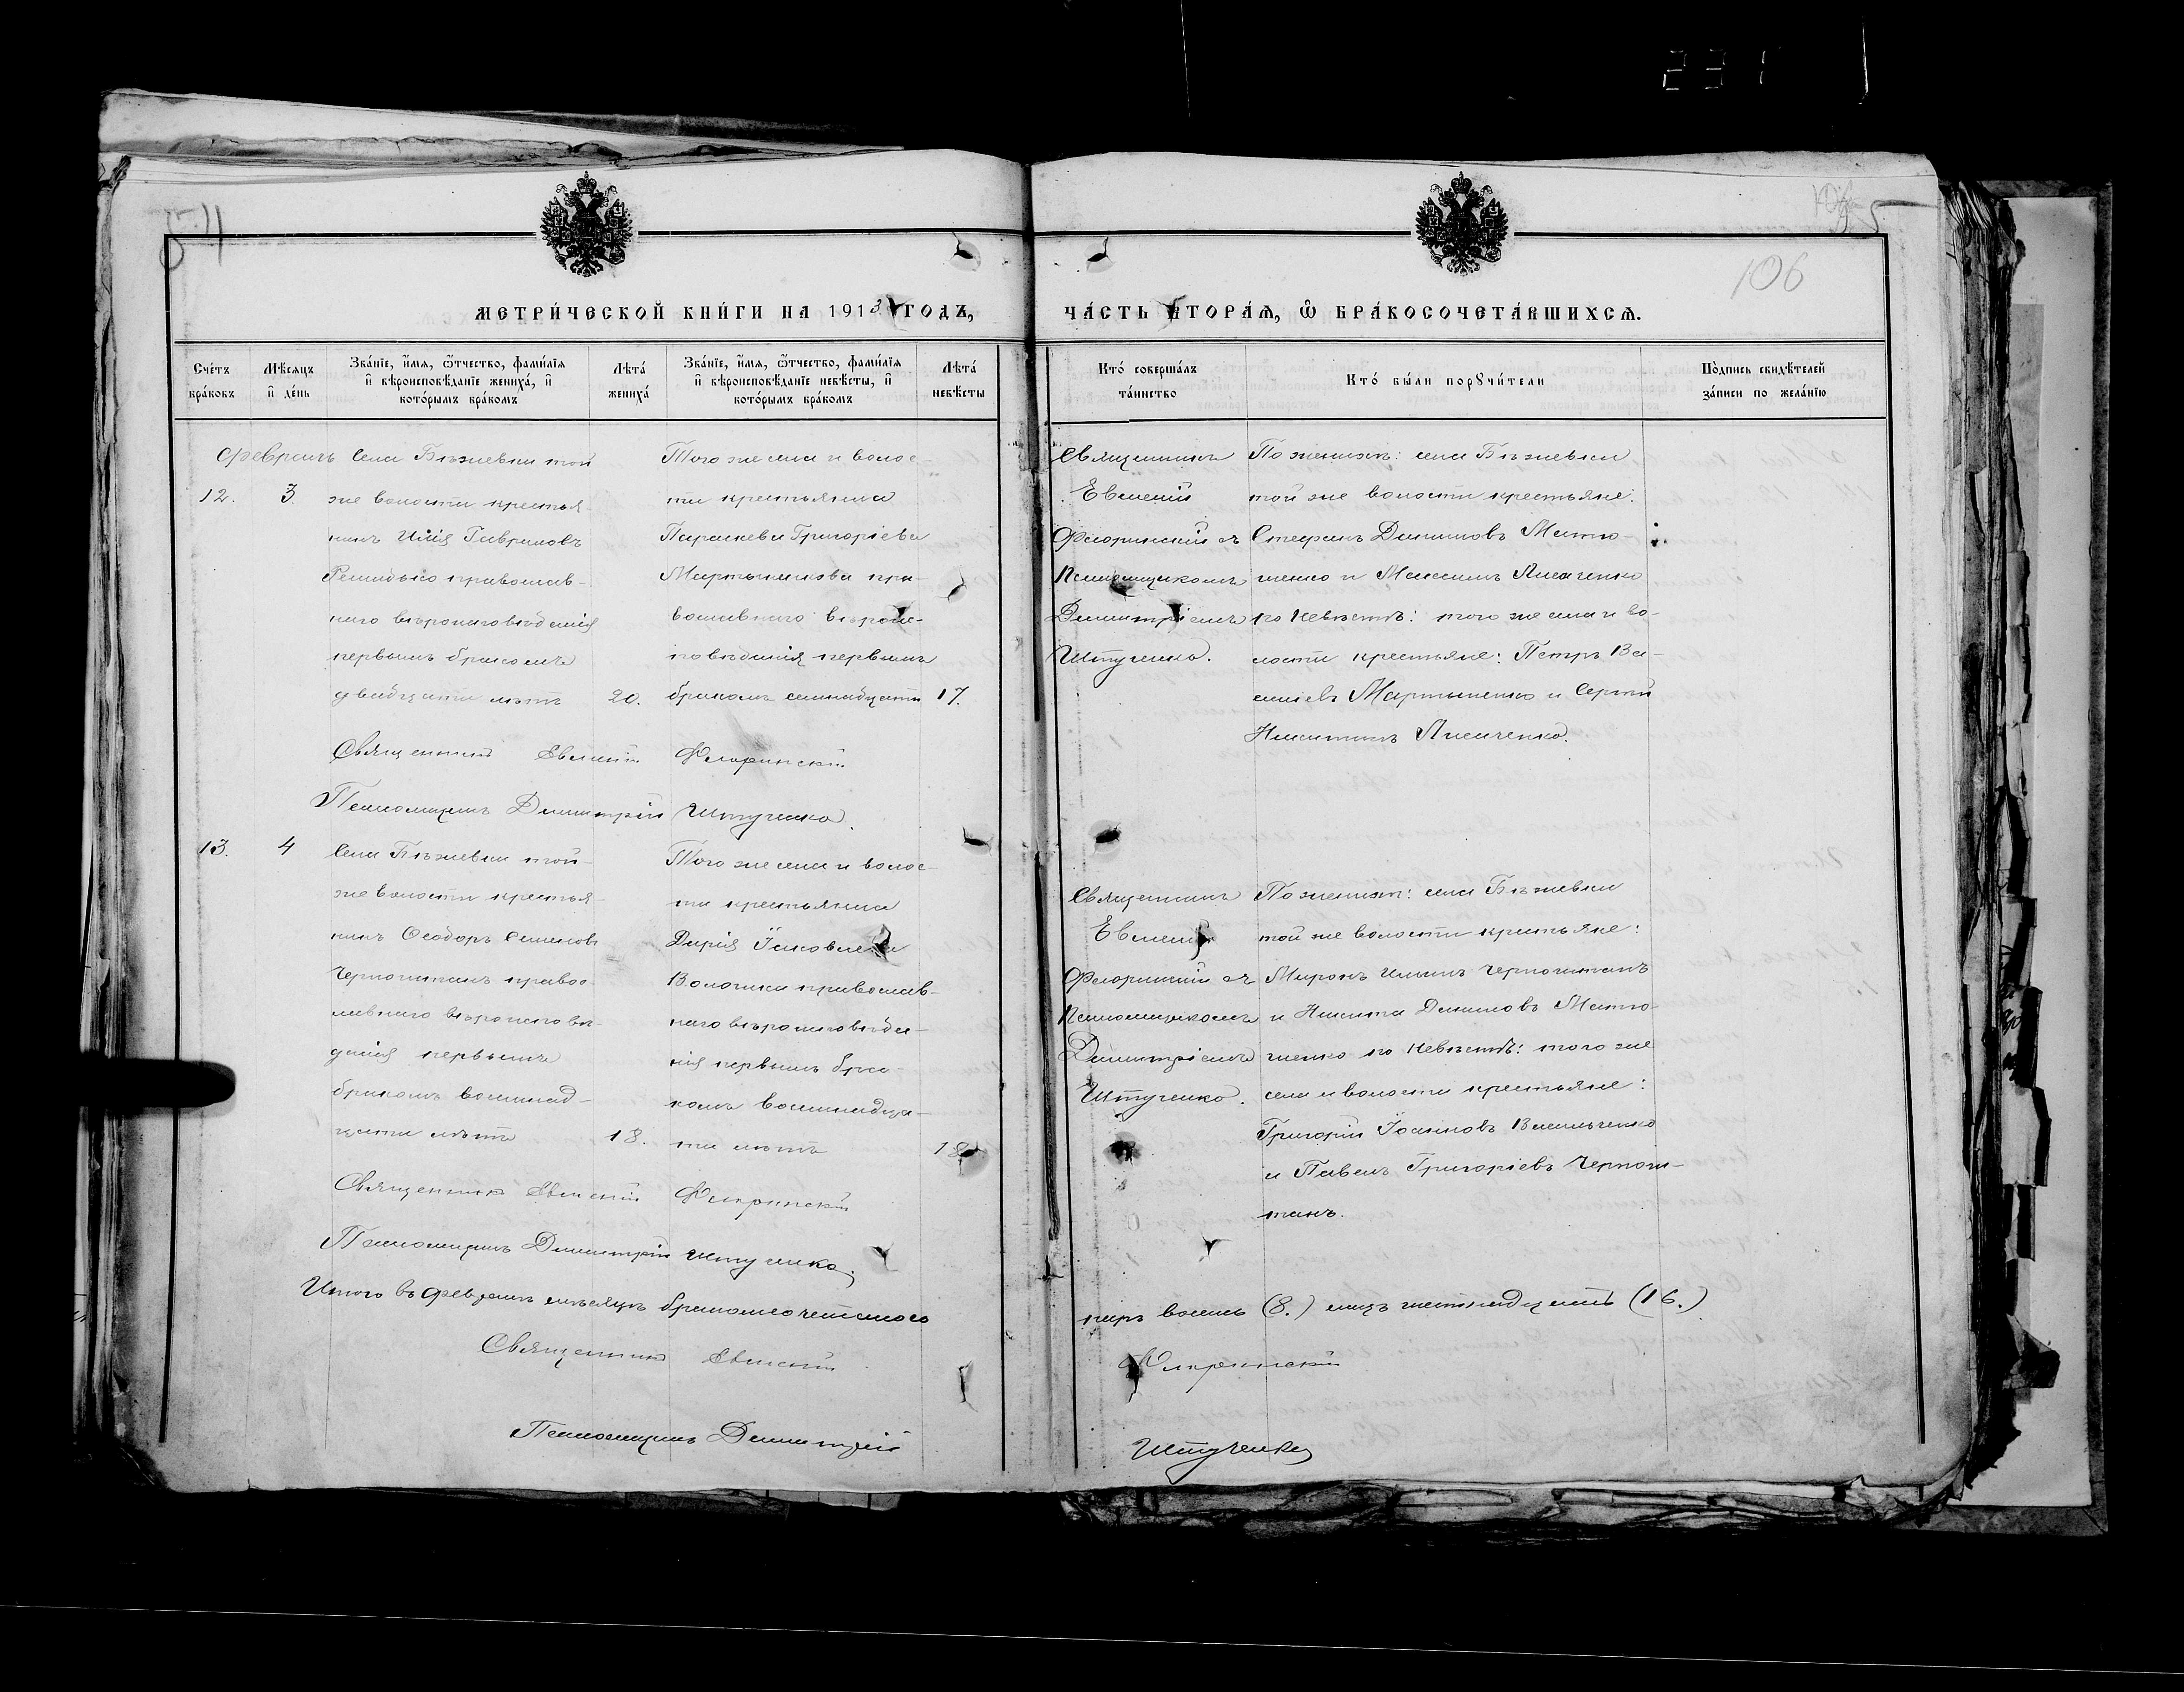 231
54
55
106
МЕТРИ́ЧЕСКОЙ КНИ́ГИ НА 1913 ГОДЪ,
ЧА́СТЬ ВТОРА́Ѧ, Ѽ БРА́КОСОЧЕТА́ВШИХСѦ.
Сче́тъ бра́ковъ
Мѣ́сяцъ и де́нь
Зва́нїе, и́мя, ѻ́тчество, фами́лїя и вѣроисповѣ́данїе жениха́, и кото́рымъ бра́комъ
Лѣта́ жениха́
Зва́нїе, и́мя, ѻ́тчество, фами́лїя и вѣроисповѣ́данїе невѣ́сты, и кото́рымъ бра́комъ
Лѣта́ невѣ́сты
Кто́ соверша́лъ та́инство
Кто́ бы́ли порꙋчи́тели
По́дпись свидѣ́телей за́писи по жела́нїю
Февраль
12.
3.
Села Бѣжевки той
же волости крестья-
нинъ Илія Гавриловъ
православ-
наго вѣроисповѣданія
первымъ бракомъ
двадцати лѣтъ
20.
Того же села и волос-
ти крестьянка
Параскева Григоріева
Мартыненкова пра-
вославнаго вѣроис-
повѣданія первымъ
бракомъ семнадцати
17.
Священникъ
Евгеній
Флоринскій съ
Псаломщикомъ
Димитріемъ
Штученко.
По женихѣ: села Бѣжевки
той же волости крестьяне:
Стефанъ
и Максимъ Лисаченко
по невѣстѣ: того же села и во-
лости крестьяне: Петръ Ва-
сильевъ Мартыненко и Сергій
Никитинъ
Священникъ Евгеній Флоринскій
Псаломщикъ Димитрій Штученко.
13.
4
Села Бѣжевки той
же волости крестья-
нинъ Ѳеодоръ Семеновъ
Черношт­анъ правос-
лавнаго вѣроисповѣ-
данія первымъ
бракомъ восемнад-
цати лѣтъ
18.
Того же села и волос-
ти крестьянка
Дарія Іаковлева
православ-
наго вѣроисповѣда-
нія первымъ бра-
комъ восемнадца-
ти лѣтъ
18
Священникъ
Евгеній
Флоринскій съ
Псаломщикомъ
Димитріемъ
Штученко.
По женихѣ: села Бѣжевки
той же волости крестьяне:
Миронъ Ильинъ
и Никита
по невѣстѣ: того же
села и волости крестьяне:
Григорій Іоанновъ Васильченко
и Павелъ Григоріевъ
Священникъ Евгеній Флоринскій
Псаломщикъ Димитрій Штученко.
Итого въ Февралѣ мѣсяцѣ бракомъ сочетаносо
паръ восемь (8.) лицъ шестнадцать (16.)
Священникъ Евгеній
Флоринскій
Псаломщикъ Димитрій
Штученко